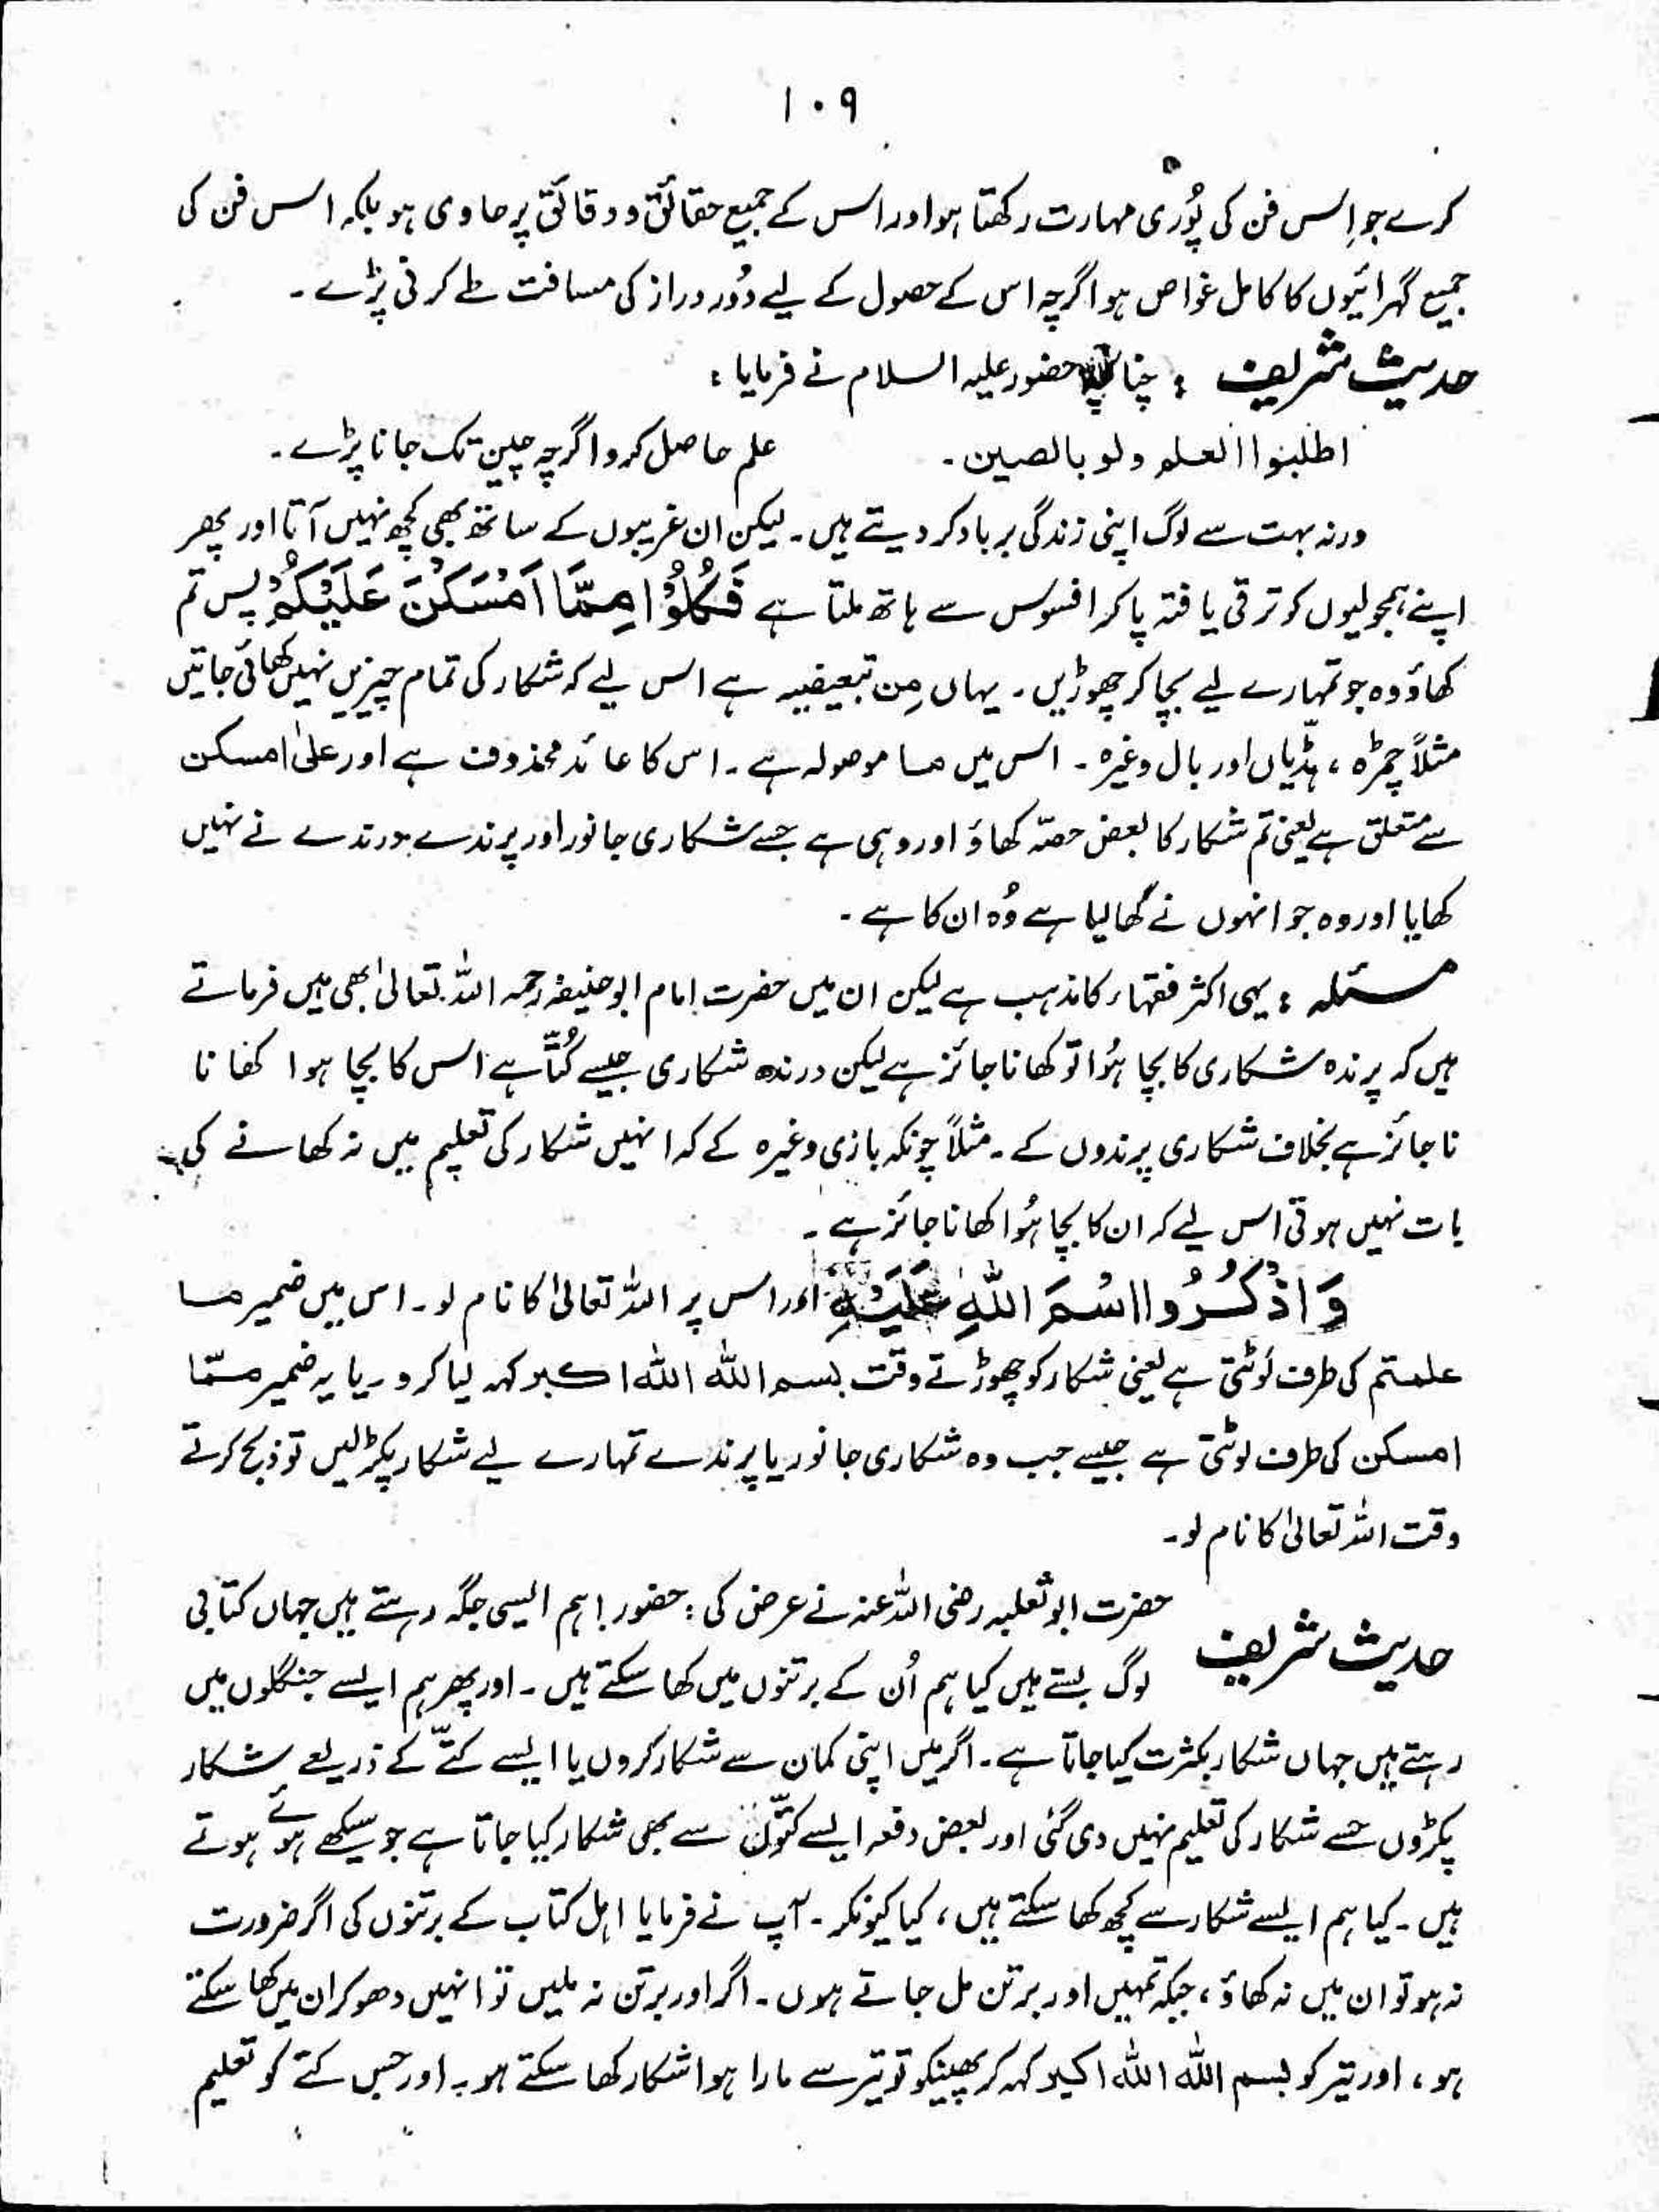 ۱۰۹
کرے جو اِس فن کی پُوری مہارت رکھتا ہو اور اس کے جمیع حقائق و دقائق پر حاوی ہو بلکہ اس فن کی
جمیع گہرائیوں کا کامل غواص ہو اگرچہ اس کے حصول کے لیے دُور دراز کی مسافت طے کرنی پڑے۔
حدیث شریف : چنانچہ حضور علیہ السلام نے فرمایا :
اطلبوا العلم ولو بالصین۔ علم حاصل کرو اگرچہ چین تک جانا پڑے۔
ورنہ بہت سے لوگ اپنی زندگی برباد کر دیتے ہیں۔ لیکن ان غریبوں کے ساتھ بھی کچھ نہیں آتا اور پھر
اپنے ہمجولیوں کو ترقی یافتہ پا کر افسوس سے ہاتھ ملتا ہے فَكُلُوْا مِمَّا اَمْسَكْنَ عَلَيْكُمْ پس تم
کھاؤ وہ جو تمہارے لیے بچا کر چھوڑیں۔ یہاں مِن تبعیضیہ ہے اس لیے کہ شکار کی تمام چیزیں نہیں کھائی جاتیں
مثلاً چمڑہ ، ہڈیاں اور بال وغیرہ۔ اس میں ما موصولہ ہے۔ اس کا عائد محذوف ہے اور علیٰ امسکن
سے متعلق ہے یعنی تم شکار کا بعض حصّہ کھاؤ اور وہی ہے جسے شکاری جانور اور پرندے درندے نے نہیں
کھایا اور وہ جو انہوں نے کھا لیا ہے وُہ ان کا ہے۔
مسئلہ : یہی اکثر فقہاء کا مذہب ہے لیکن ان میں حضرت امام ابو حنیفہ رحمہ اللہ تعالیٰ بھی ہیں فرماتے
ہیں کہ پرندہ شکاری کا بچا ہُوا تو کھانا جائز ہے لیکن درندہ شکاری جیسے کُتّا ہے اس کا بچا ہوا کھانا
ناجائز ہے بخلاف شکاری پرندوں کے۔ مثلاً چونکہ بازی وغیرہ کے کہ انہیں شکار کی تعلیم میں نہ کھانے کی
بات نہیں ہوتی اس لیے کہ ان کا بچا ہُوا کھانا جائز ہے۔
وَاذْكُرُوا اسْمَ اللهِ عَلَيْهِ اور اس پر اللہ تعالیٰ کا نام لو۔ اس میں ضمیر ما
علمتم کی طرف لوٹتی ہے یعنی شکار کو چھوڑتے وقت بسم اللہ اللہ اکبر کہہ لیا کرو۔ یا یہ ضمیر ممّا
امسکن کی طرف لوٹتی ہے جیسے جب وہ شکاری جانور یا پرندے تمہارے لیے شکار پکڑ لیں تو ذبح کرتے
وقت اللہ تعالیٰ کا نام لو۔
حدیث شریف حضرت ابو ثعلبہ رضی اللہ عنہ نے عرض کی : حضور ! ہم ایسی جگہ رہتے ہیں جہاں کتابی
لوگ بستے ہیں کیا ہم اُن کے برتنوں میں کھا سکتے ہیں۔ اور پھر ہم ایسے جنگلوں میں
رہتے ہیں جہاں شکار بکثرت کیا جاتا ہے۔ اگر میں اپنی کمان سے شکار کروں یا ایسے کتّے کے ذریعے شکار
پکڑوں جسے شکار کی تعلیم نہیں دی گئی اور بعض دفعہ ایسے کتّوں سے بھی شکار کیا جاتا ہے جو سیکھے ہوئے ہوتے
ہیں۔ کیا ہم ایسے شکار سے کچھ کھا سکتے ہیں ، کیا کیونکر۔ آپ نے فرمایا اہل کتاب کے برتنوں کی اگر ضرورت
نہ ہو تو ان میں نہ کھاؤ ، جبکہ تمہیں اور برتن مل جاتے ہوں۔ اگر اور برتن نہ ملیں تو انہیں دھو کر ان میں کھا سکتے
ہو ، اور تیر کو بسم اللہ اللہ اکبر کہہ کر پھینکو تو تیر سے مارا ہوا شکار کھا سکتے ہو۔ اور جس کتے کو تعلیم